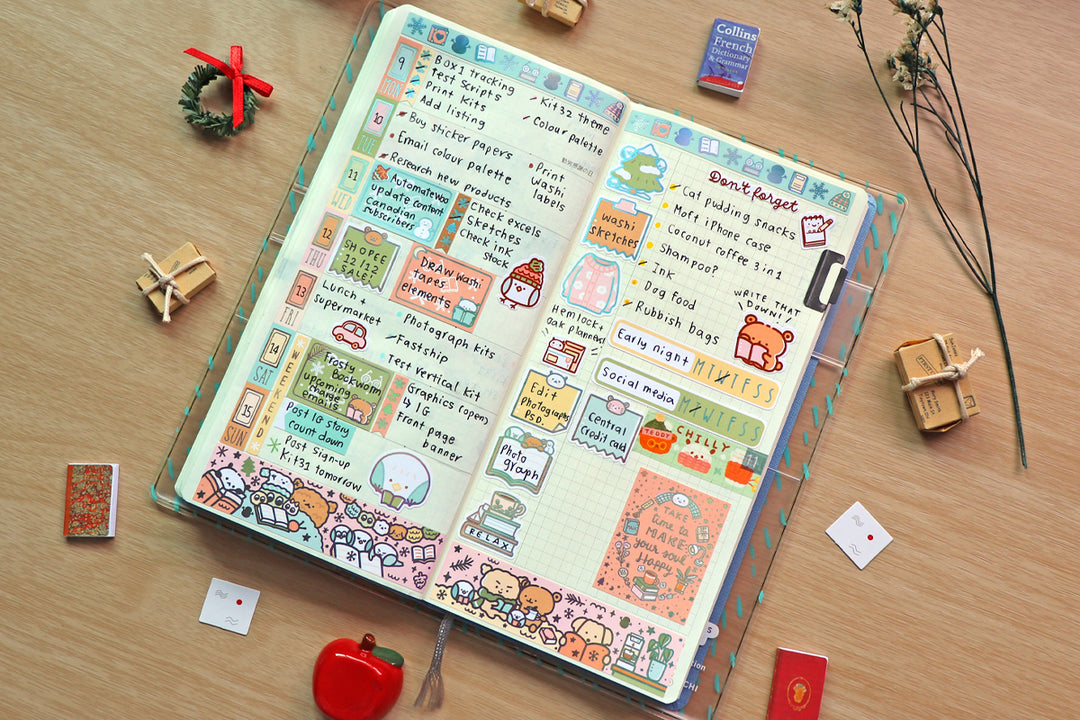 9
MON
Box 1 tracking
Test scripts
Print kits
Add listing
Kit32 theme
Colour palette
10
TUE
Buy sticker papers
Email colour palette
Research new products
Print
washi
labels
11
WED
AutomateWoo
update content
Canadian
subscribers
Check excels
Sketches
Check ink
stock
12
THU
SHOPEE
12/12
SALE!
DRAW washi
tapes
elements
13
FRI
Lunch +
supermarket
Photograph kits
Fastship
Test vertical kit
14
SAT
WEEKEND
Frosty
Bookworm
upcoming
charge
emails
Graphics (open)
↳ IG
Front page
banner
15
SUN
Post IG story
count down
Post Sign-up
Kit31 tomorrow
Don't forget
Cat pudding snacks
Moft iPhone case
Coconut coffee 3 in 1
Shampoo?
Ink
Dog food
Rubbish bags
WRITE THAT
DOWN!
washi
sketches
Hemlock +
oak planner
Early night MTWTFSS
Social media MTWTFSS
Edit
photographs
PSD.
Central
Credit card
TEDDY
CHILLY
Photo
graph
RELAX
TAKE
time to
MAKE
your soul
Happy
Collins
French
Dictionary
& Grammar